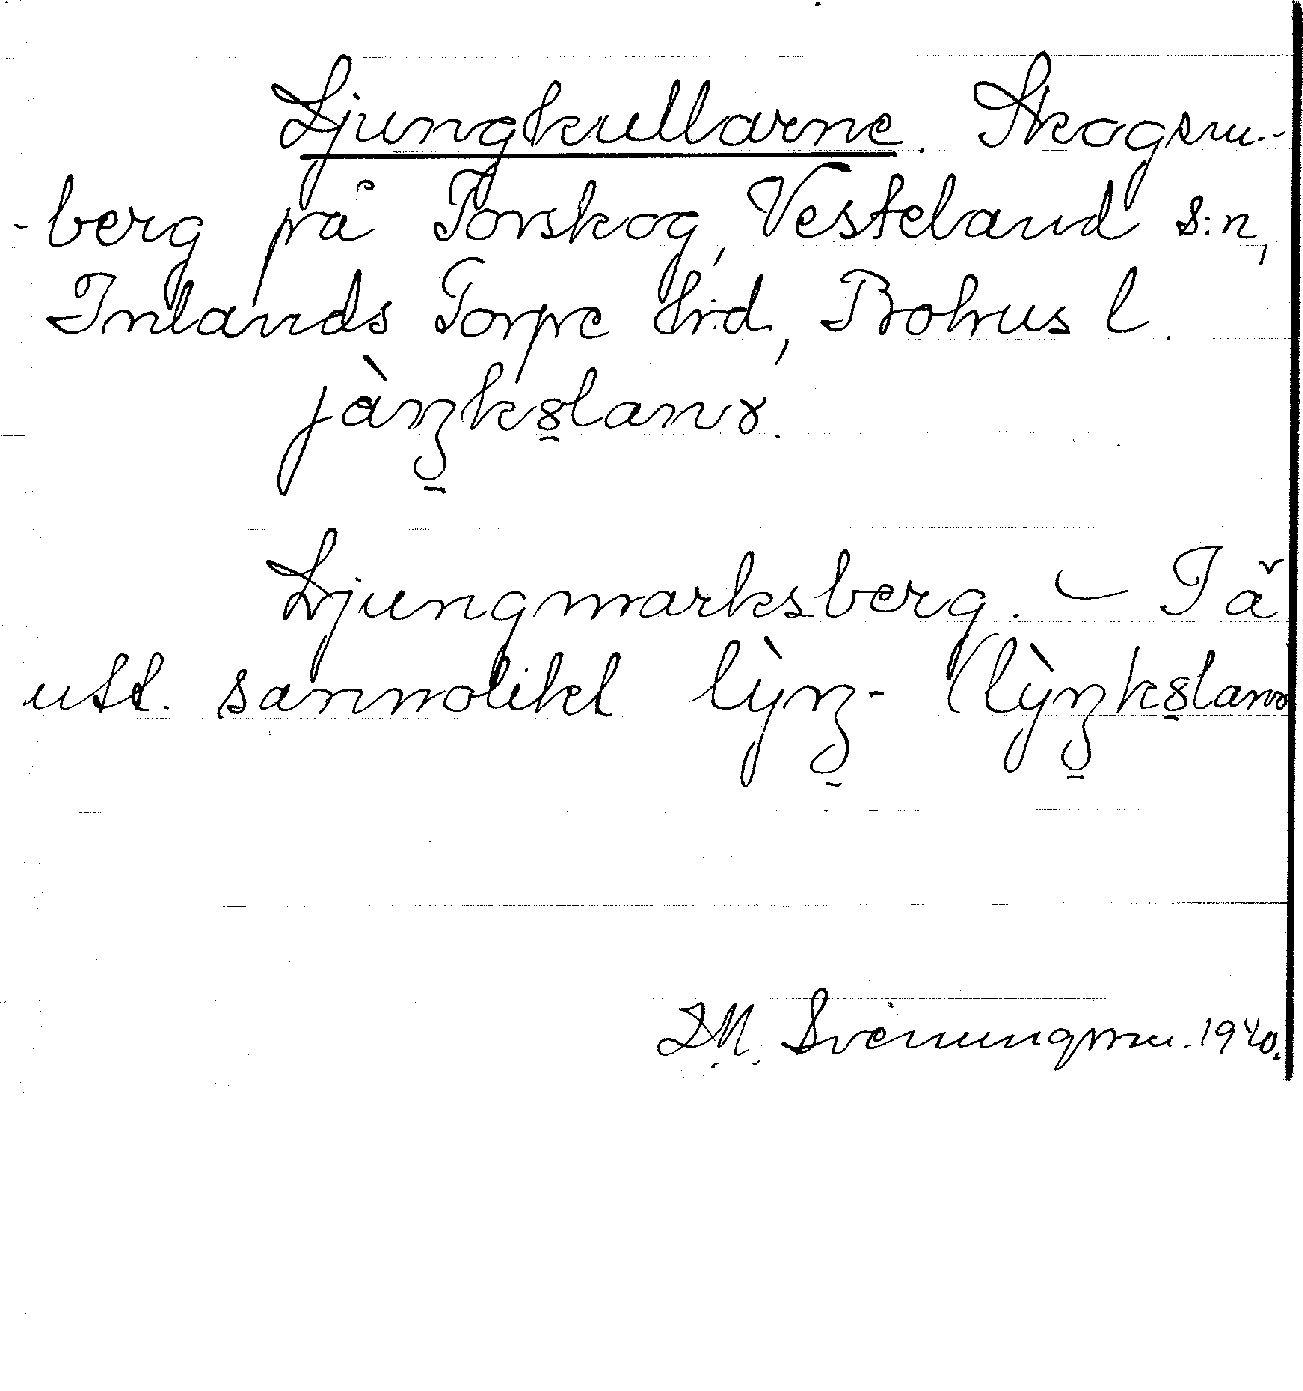 Ljungkullarne. Skogsm.-
-berg på Torskog, Vesteland s:n,
Inlands Torpe h:d, Bohus l.
jàn̠ks̠lanɤ.
Ljungmarksberg. – Tä
utt. sannolikt lỳn̠- (lỳn̠ks̠lanɤ
Svenungsson. 1940.